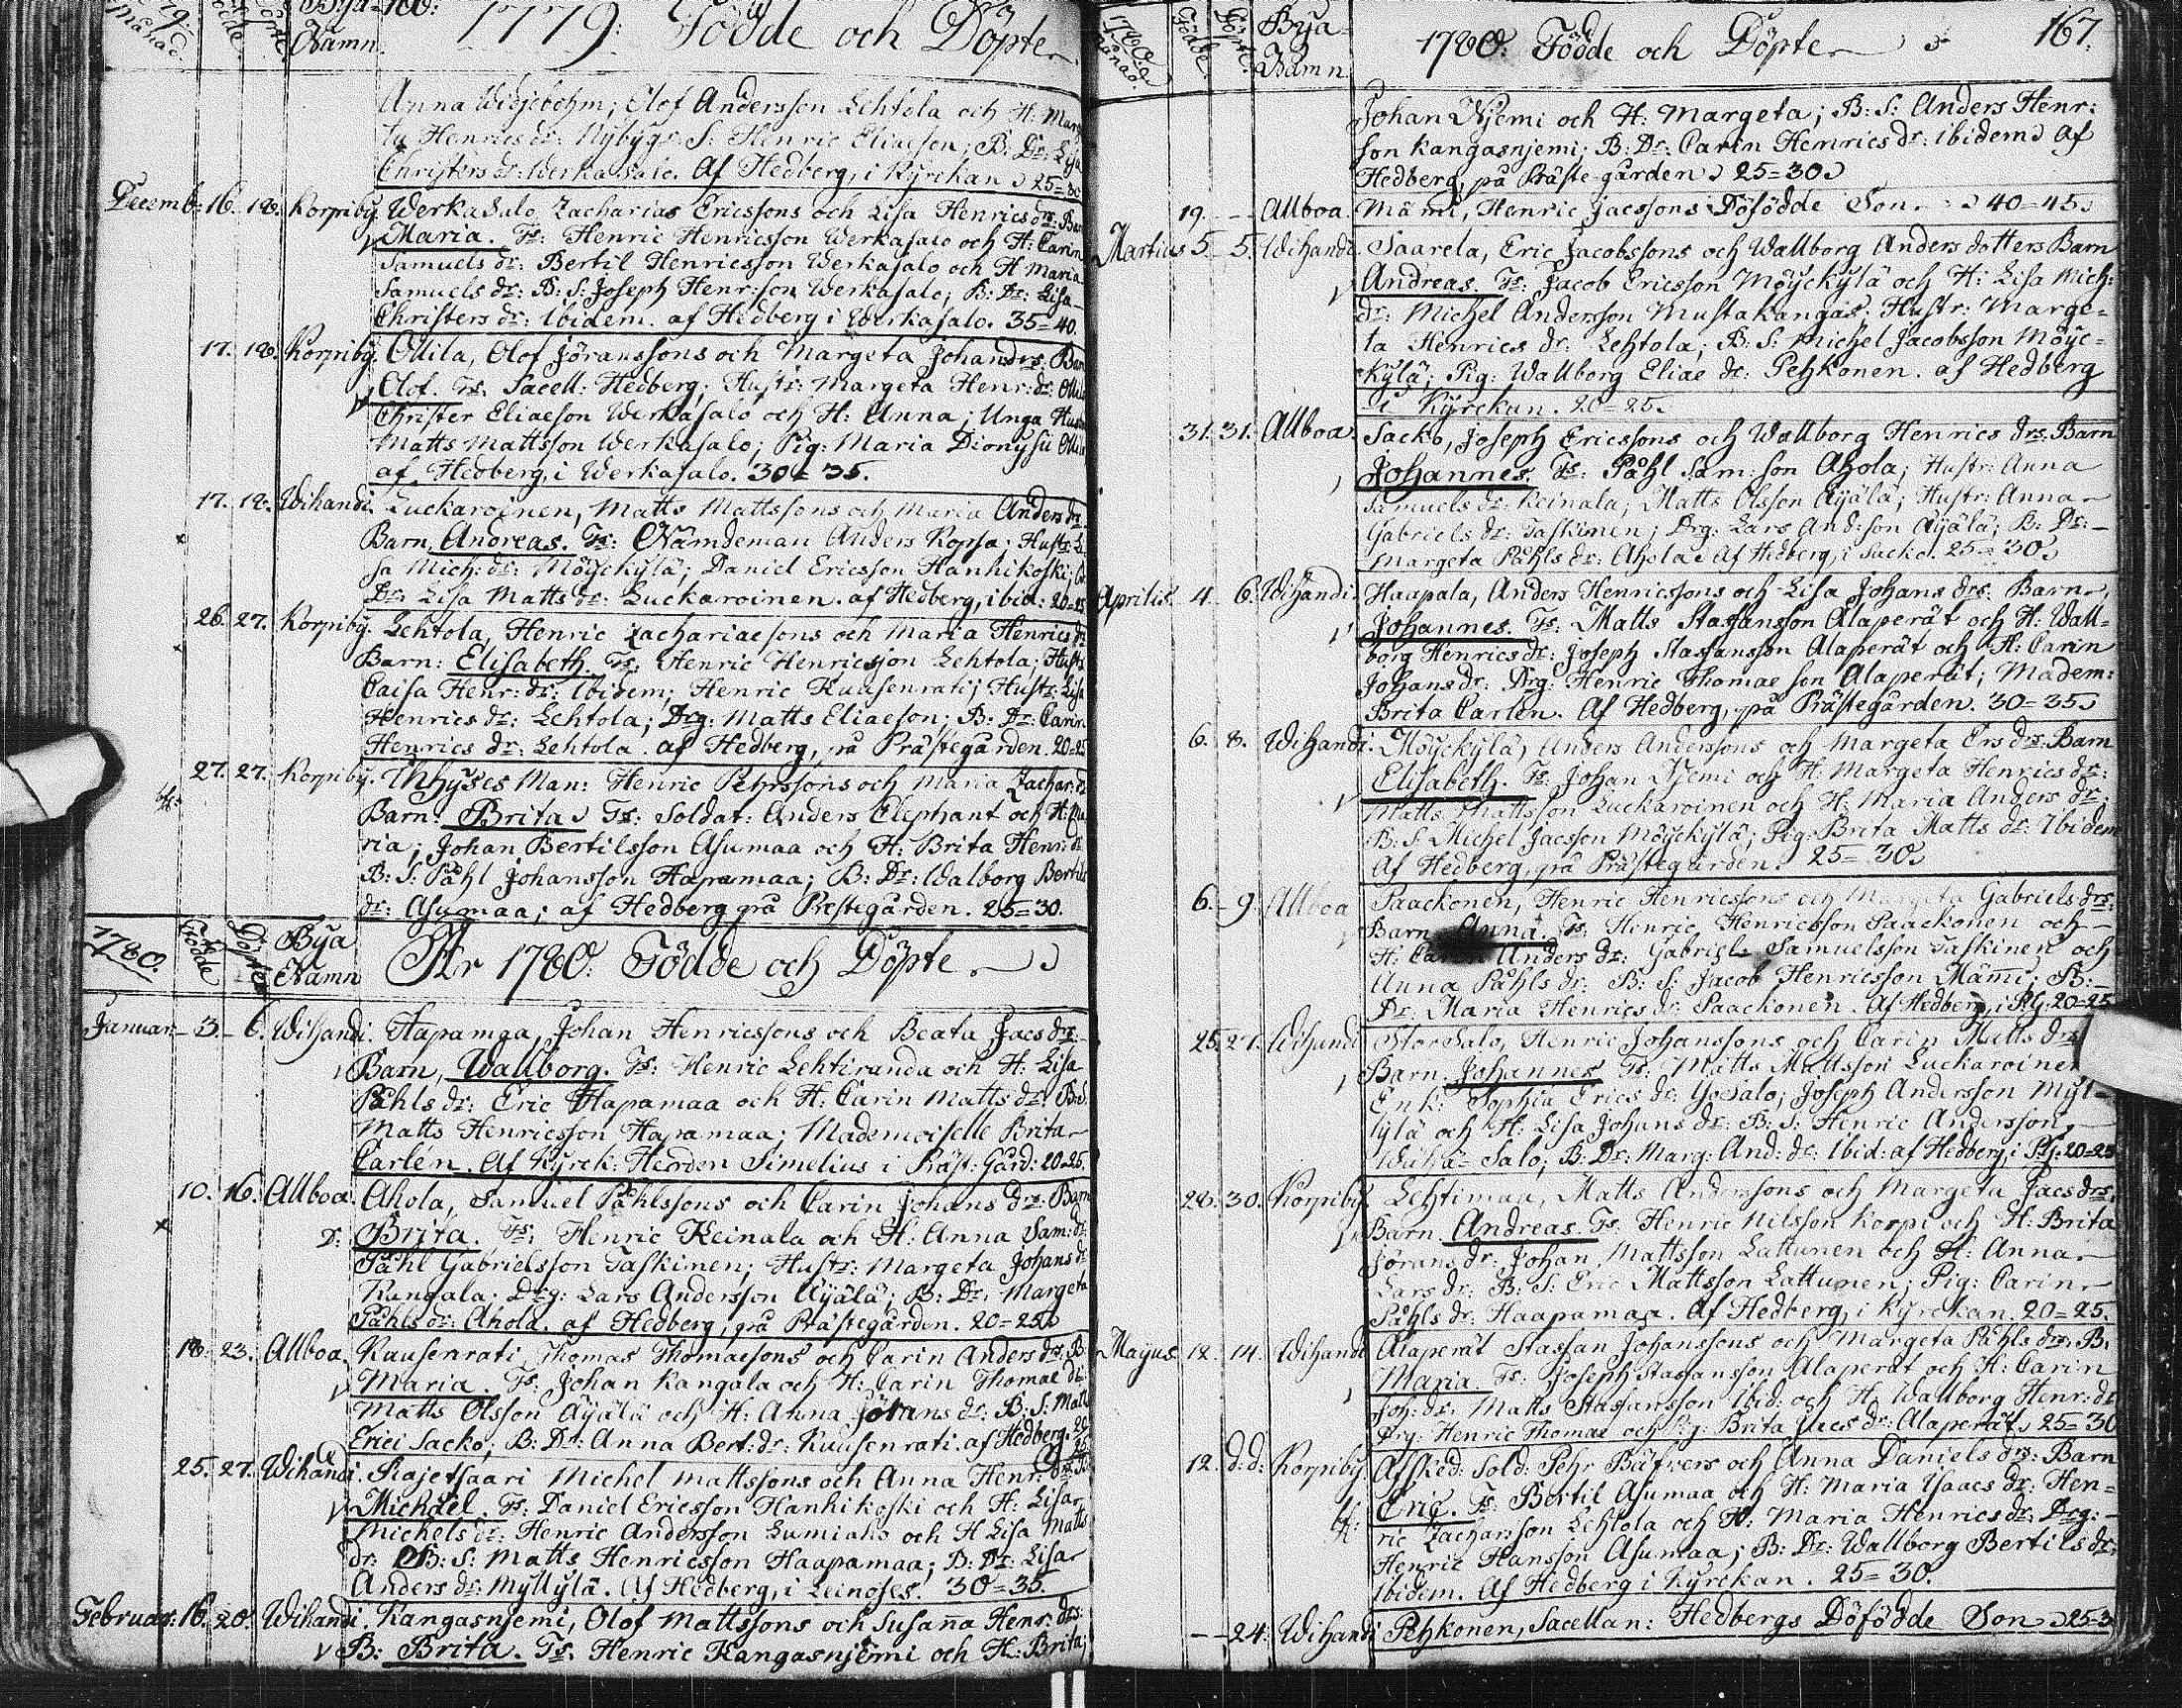 1779. Månad. Födde. Döpte. Bya Namn. 1779: Födde och Döpte
Anna Widjebohm; Olof Andersson Lehtola och H: Marge
ta Henrics dr: Nybygg: S: Henric Eliaeson; B: Dr: Lisa
Christers dr: Werkasalo. Af Hedberg, i Kyrckan 25=30
Decemb: 16. 18. Korpiby. Werkasalo Zacharias Ericssons och Lisa Henrics drs: Barn
Maria. Fs: Henric Henricsson Werkasalo och H: Carin
Samuels dr: Bertil Henricsson Werkasalo och H Maria
Samuels dr: B: S: Joseph Henr:son Werkasalo; B: Dr: Lisa
Christers dr: Ibidem. af Hedberg i Werkasalo. 35=40.
17. 18. Korpiby. Ollila, Olof Jöranssons och Margeta Johan drs: Barn
Olof. Fs: Sacell: Hedberg; Hustr: Margeta Henr: dr: Ollila
Christer Eliaeson Werkasalo och H: Anna; Unga
Matts Mattsson Werkasalo; Pig: Maria Dionysii Ollila
af Hedberg, i Werkasalo. 30=35.
17. 18. Wihandi. Luckaroinen, Matts Mattssons och Maria Anders drs
Barn, Andreas. Fs: Nämdeman Anders Kopsa; Hustr: Li
sa Mich: dr: Möyckylä; Daniel Ericsson Hanhikoski; B:
Dr: Lisa Matts dr: Luckaroinen. af Hedberg, ibid: 20=25
26. 27. Korpiby. Lehtola, Henric Zachariaesons och Maria Henrics drs
Barn: Elisabeth. Fs: Henric Henricsson Lehtola; Hustr:
Caisa Henr: dr: Ibidem; Henric Kuusenrati; Hustr: Lisa
Henrics dr: Lehtola; Drg: Matts Eliaeson; B: Dr: Carin
Henrics dr: Lehtola. af Hedberg, på Prästegården. 20=25
27. 27. Korpiby. Inhyses Man: Henric Pehrssons och Maria Zachar: drs
Barn. Brita. Fs: Soldat: Anders Elephant och H: Ma
ria; Johan Bertilsson Asumaa och H: Brita Henr: dr
B: S: Påhl Johansson Hapamaa; B: Dr: Walborg Bertils
dr: Asumaa; af Hedberg på Prestegården. 25=30.
1780. Födde Döpte Bya Namn År 1780: Födde och Döpte
Januar: 3. 6. Wihandi. Hapamaa, Johan Henricssons och Beata Jacs drs:
Barn, Wallborg. Fs: Henric Lehtiranda och H: Lisa
Påhls dr: Eric Hapamaa och H: Carin Matts dr: B: S:
Matts Henricsson Hapamaa; Mademoiselle Brita
Carlén. Af Kyrck: Herden Simelius i Präst: Gård: 20=25.
10. 16. Allboa. Ahola, Samuel Påhlssons och Carin Johans drs: Barn
D: Brita. Fs: Henric Keinala och H: Anna Sam: dr:
Påhl Gabrielsson Taskinen; Hustr: Margeta Johans dr
Kangala; Drg: Lars Andersson Äyälä; B: Dr: Margeta
Påhls dr: Ahola. af Hedberg, på Prästegården. 20=25.
18. 23. Allboa. Kuusenrati Thomas Thomaesons och Carin Anders drs: B:
Maria. Fs: Johan Kangala och H: Carin Thomae dr:
Matts Olsson Äyälä och H: Anna Jörans dr: B: S: Matts
Erici Sacko; B: Dr: Anna Bert: dr: Kuusenrati. af Hedberg. 20=25
25. 27. Wihandi. Rajetsaari Michel Mattssons och Anna Henr: drs:
Michael. Fs: Daniel Ericsson Hanhikoski och H: Lisa
Michels dr: Henric Andersson Lumiaho och H Lisa Matts
dr: B: S: Matts Henricsson Haapamaa; B: Dr: Lisa
Anders dr: Myllylä. Af Hedberg, i Leinoses. 30=35.
Februar: 16. 20. Wihandi Kangasnjemi, Olof Mattssons och Susanna Henr: drs:
B: Brita. Fs: Henric Kangasnjemi och H: Brita;
1780. Månad. Födde. Döpte. Bya Namn 1780: Födde och Döpte 167.
Johan Njemi och H: Margeta; B: S: Anders Henr:
son Kangasnjemi; B: Dr: Carin Henrics dr: Ibidem af
Hedberg, på Präste gården 25=30
19. Allboa. Mämi, Henric Jacssons Döfödde Son. 40=45.
Martius 5. 5. Wihandi. Saarela, Eric Jacobssons och Wallborg Anders dotters Barn
Andreas. Fs: Jacob Ericsson Möyckylä och H: Lisa Mich:
dr: Michel Andersson Mustakangas. Hustr: Marge=
ta Henrics dr: Lehtola; B: S: Michel Jacobsson Möyc=
kylä; Pig: Wallborg Eliae dr: Pehkonen. af Hedberg
i Kyrckan. 20=25.
31. 31. Allboa. Sacko, Joseph Ericssons och Wallborg Henrics drs: Barn
Johannes. Fs: Påhl Sam: son Ahola; Hustr: Anna
Samuels dr: Keinala; Matts Olsson Äyälä; Hustr: Anna
Gabriels dr: Taskinen; Drg: Lars And:son Äyälä; B: Dr:
Margeta Påhls dr: Ahola. Af Hedberg, i Sacko. 25=30
Aprilis 4. 6. Wihandi. Haapala, Anders Henricssons och Lisa Johans drs: Barn
Johannes. Fs: Matts Staffansson Alaperät och H: Wall=
borg Henrics dr: Joseph Staffansson Alaperät och H: Carin
Johans dr: Drg: Henric Thomae son Alaperät; Madem:
Brita Carlén. Af Hedberg, på Prästegården. 30=35
6. 8. Wihandi. Möyckylä, Anders Anderssons och Margeta Ers drs: Barn
Elisabeth. Fs: Johan Njemi och H: Margeta Henrics dr:
Matts Mattsson Luckaroinen och H: Maria Anders dr;
B: S: Michel Jacsson Möyckylä; Pig: Brita Matts dr: Ibidem
Af Hedberg, på Prästegården. 25=30
6. 9. Allboa Paackonen, Henric Henricssons och Margeta Gabriels drs:
Barn Anna. Fs: Henric Henricsson Paackonen och
H: Carin Anders dr: Gabriel Samuelsson Taskinen och
Anna Påhls dr: B: S: Jacob Henricsson Mämi; B:
Dr: Maria Henrics dr: Paackonen. Af Hedberg, i P:G: 20=25
25. 27. Wihandi Storsalo, Henric Johanssons och Carin Matts drs
Barn. Johannes. Fs: Matts Mattsson Luckaroinen
Enk: Sophia Erics dr: Joseph Andersson Myl=
lylä och H: Lisa Johans dr: B: S: Henric Andersson
Salo; B: Dr: Marg: And: dr: Ibid: af Hedberg, i P:G: 20=25
28. 30. Korpiby. Lehtimaa, Matts Anderssons och Margeta Jacs drs
Barn. Andreas. Fs: Henric Nilsson Korpi och H: Brita
Jörans dr: Johan Mattsson Lattunen och H: Anna
Lars dr: B: S: Eric Mattsson Lattunen; Pig: Carin
Påhls dr: Haapamaa. Af Hedberg, i Kyrckan. 20=25.
Majus 12. 14. Wihandi Alaperät Staffan Johanssons och Margeta Påhls drs: B.
Maria. Fs: Joseph Staffansson Alaperät och H: Carin
Joh: dr: Matts Staffansson Ibid: och H: Wallborg Henr: dr
Drg: Henric Thomae och Pig: Brita Jacs dr: Alaperät. 25=30
12. d: d: Korpiby. Afsked: Sold: Pehr Bäfrers och Anna Daniels drs: Barn
Eric. Fs: Bertil Asumaa och H: Maria Isaacs dr: Hen=
ric Zacharsson Lehtola och H: Maria Henrics dr: Drg:
Henric Hansson Asumaa; B: Dr: Wallborg Bertils dr
Ibidem. Af Hedberg i Kyrckan. 25=30.
24. Wihandi Pehkonen, Sacellan: Hedbergs Döfödde Son 25=3